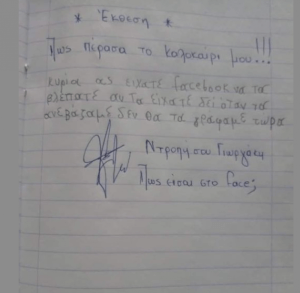 * Έκθεση *
Πως πέρασα το καλοκαίρι μου...!!!
κυρία ας είχατε facebook να τα
βλέπατε αν τα είχατε δει όταν τα
ανεβάζαμε δεν θα τα γράφαμε τώρα
Ντροπή σου Γιωργάκη
Πως είσαι στο face;